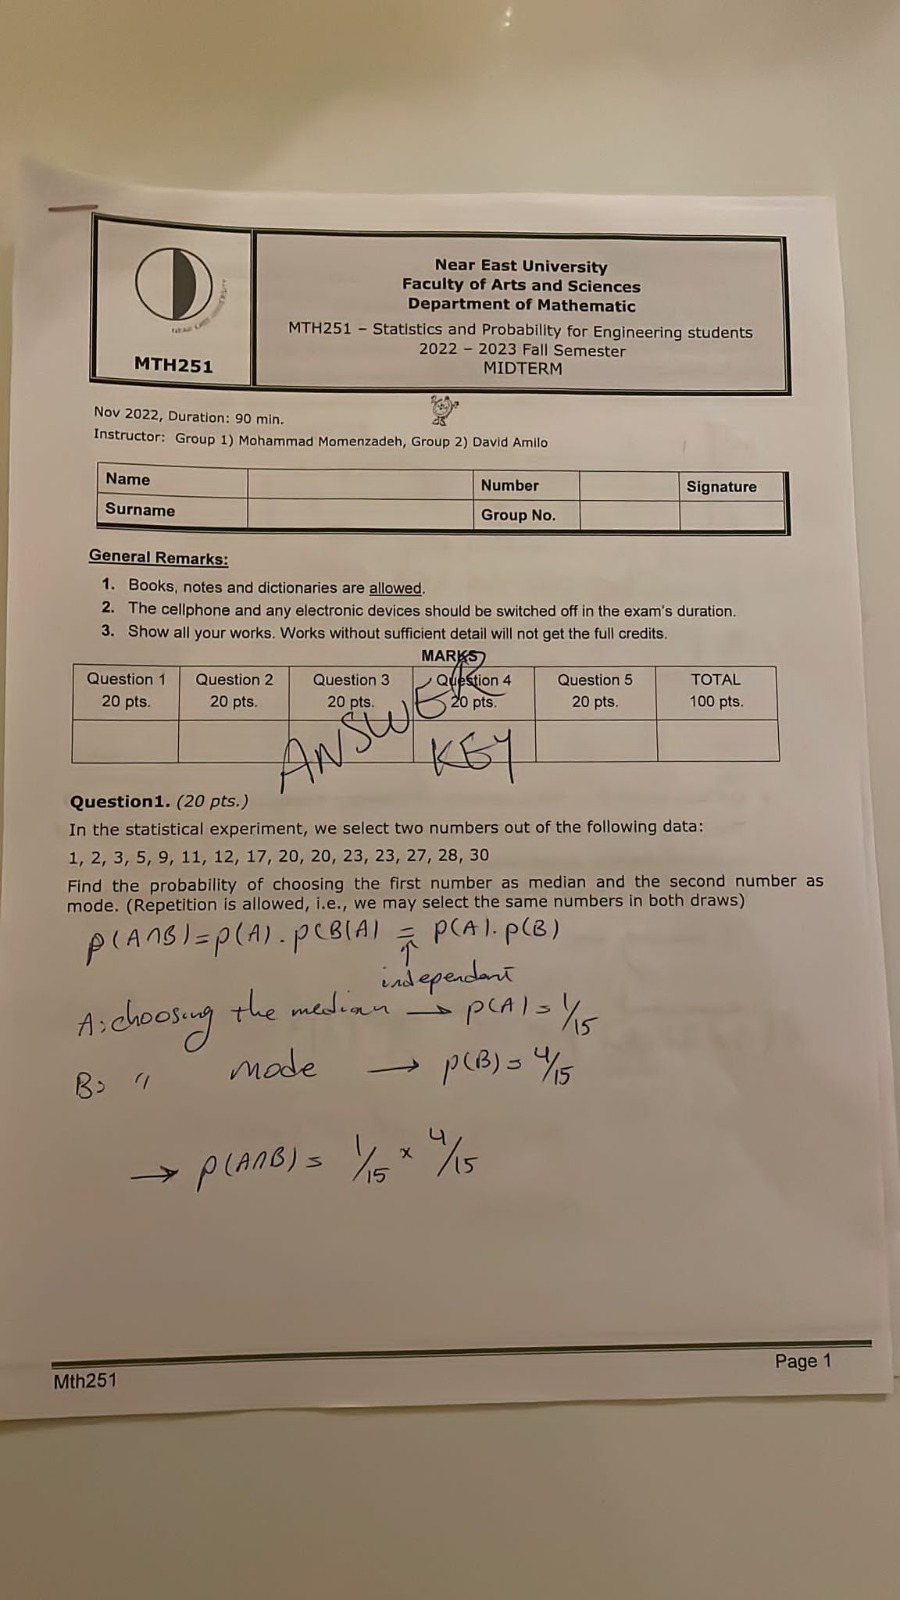 Near East University
Faculty of Arts and Sciences
Department of Mathematic
MTH251 – Statistics and Probability for Engineering students
2022 – 2023 Fall Semester
MIDTERM
NEAR EAST UNIVERSITY
MTH251
Nov 2022, Duration: 90 min.
Instructor: Group 1) Mohammad Momenzadeh, Group 2) David Amilo
Name Number Signature
Surname Group No.
General Remarks:
1. Books, notes and dictionaries are allowed.
2. The cellphone and any electronic devices should be switched off in the exam's duration.
3. Show all your works. Works without sufficient detail will not get the full credits.
MARKS
Question 1 Question 2 Question 3 Question 4 Question 5 TOTAL
20 pts. 20 pts. 20 pts. 20 pts. 20 pts. 100 pts.
ANSWER
KEY
Question1. (20 pts.)
In the statistical experiment, we select two numbers out of the following data:
1, 2, 3, 5, 9, 11, 12, 17, 20, 20, 23, 23, 27, 28, 30
Find the probability of choosing the first number as median and the second number as
mode. (Repetition is allowed, i.e., we may select the same numbers in both draws)
P(A∩B)=P(A).P(B|A) = P(A).P(B)
↑
independent
A: choosing the median → P(A)=1/15
B: " mode → P(B)=4/15
→ P(A∩B)= 1/15 × 4/15
Mth251 Page 1